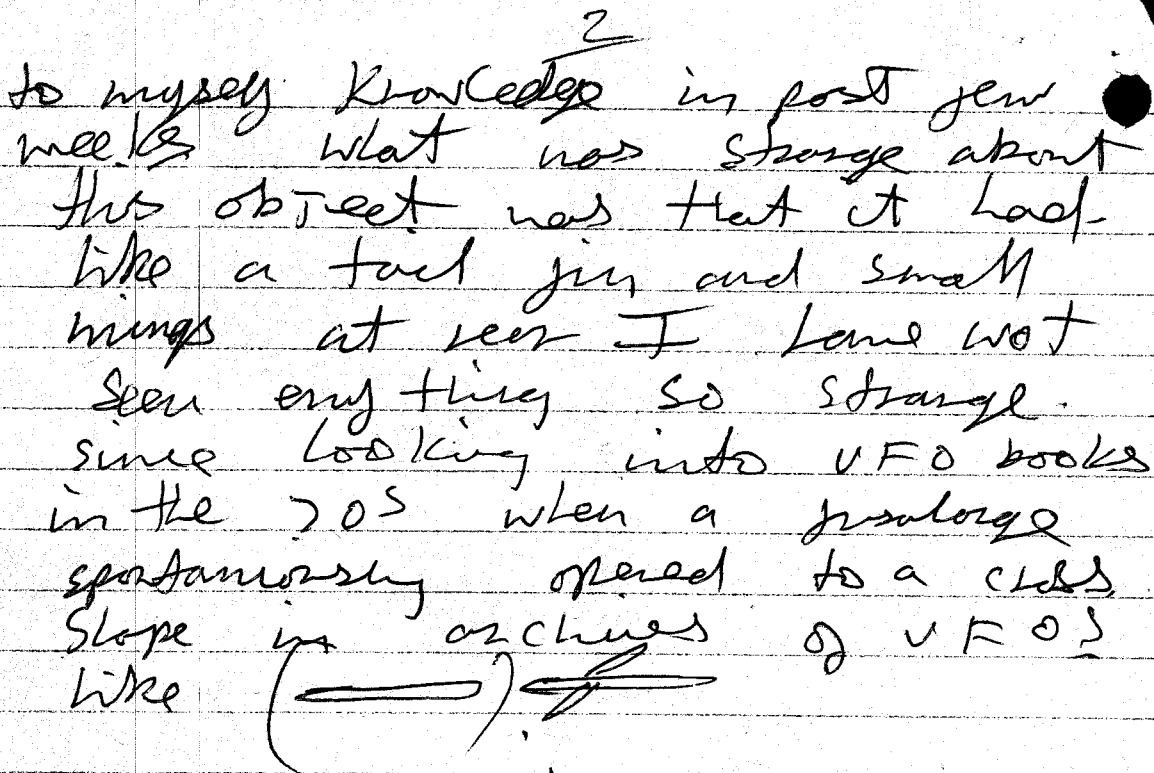 2
to myself Knowledge in past few
weeks what was strange about
this object was that it had
like a tail fin and small
wings at rear I have not
seen anything so strange.
since looking into UFO books
in the 70s when a
spontaniously opened to a cross
Shape in archives of UFOs
like